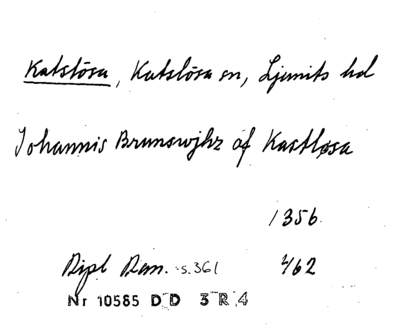 Katslösa, Katslösa sn, Ljunits hd
Johannis Brunswjhz af Kastløsa
1356
Dipl Dan. s. 361 4/62
Nr 10585 D D 3 R 4